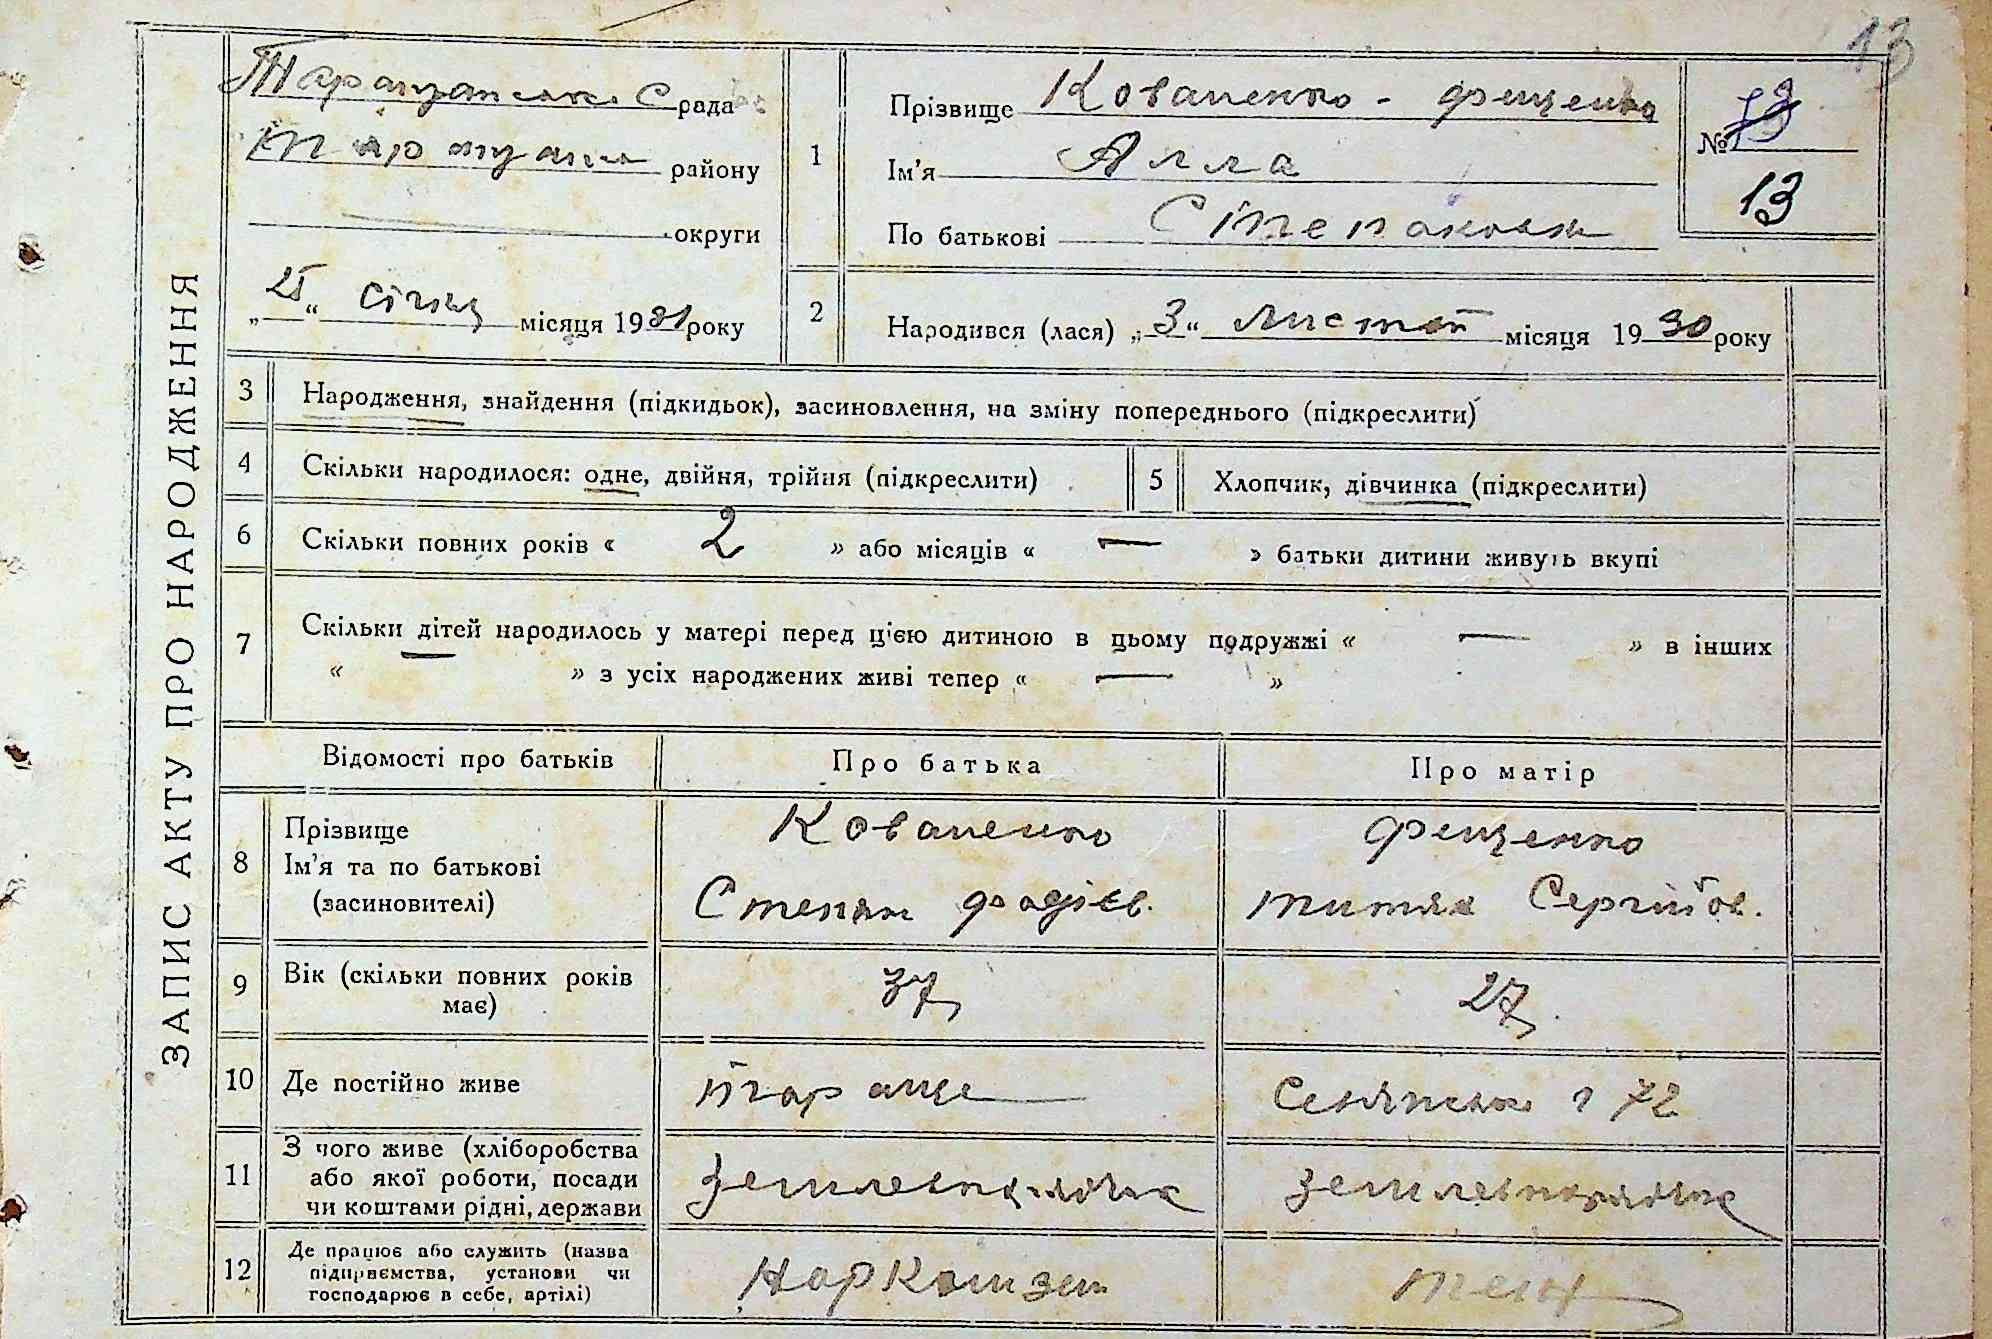 13
ЗАПИС АКТУ ПРО НАРОДЖЕННЯ
Таращанська С рада
Таращан району
округи
„25“ січня місяця 1931 року
1
Прізвище Коваленко - Фещенко
Ім'я Алла
По батькові Степановна
№
13
2
Народився (лася) „3“ листоп місяця 1930 року
3
Народження, знайдення (підкидьок), засиновлення, на зміну попереднього (підкреслити)
4
Скільки народилося: одне, двійня, трійня (підкреслити)
5
Хлопчик, дівчинка (підкреслити)
6
Скільки повних років « 2 » або місяців « — » батьки дитини живуть вкупі
7
Скільки дітей народилось у матері перед цією дитиною в цьому подружжі « — » в інших
« » з усіх народжених живі тепер « — »
Відомості про батьків
Про батька
Про матір
8
Прізвище
Ім'я та по батькові
(засиновителі)
Коваленко
Степан Фадієв.
Фещенко
Сергійов.
9
Вік (скільки повних років
має)
37
27
10
Де постійно живе
Тараща
72
11
З чого живе (хліборобства
або якої роботи, посади
чи коштами рідні, держави
землевпорядник
землевпорядник
12
Де працює або служить (назва
підприємства, установи чи
господарює в себе, артілі)
Наркомзем
теж